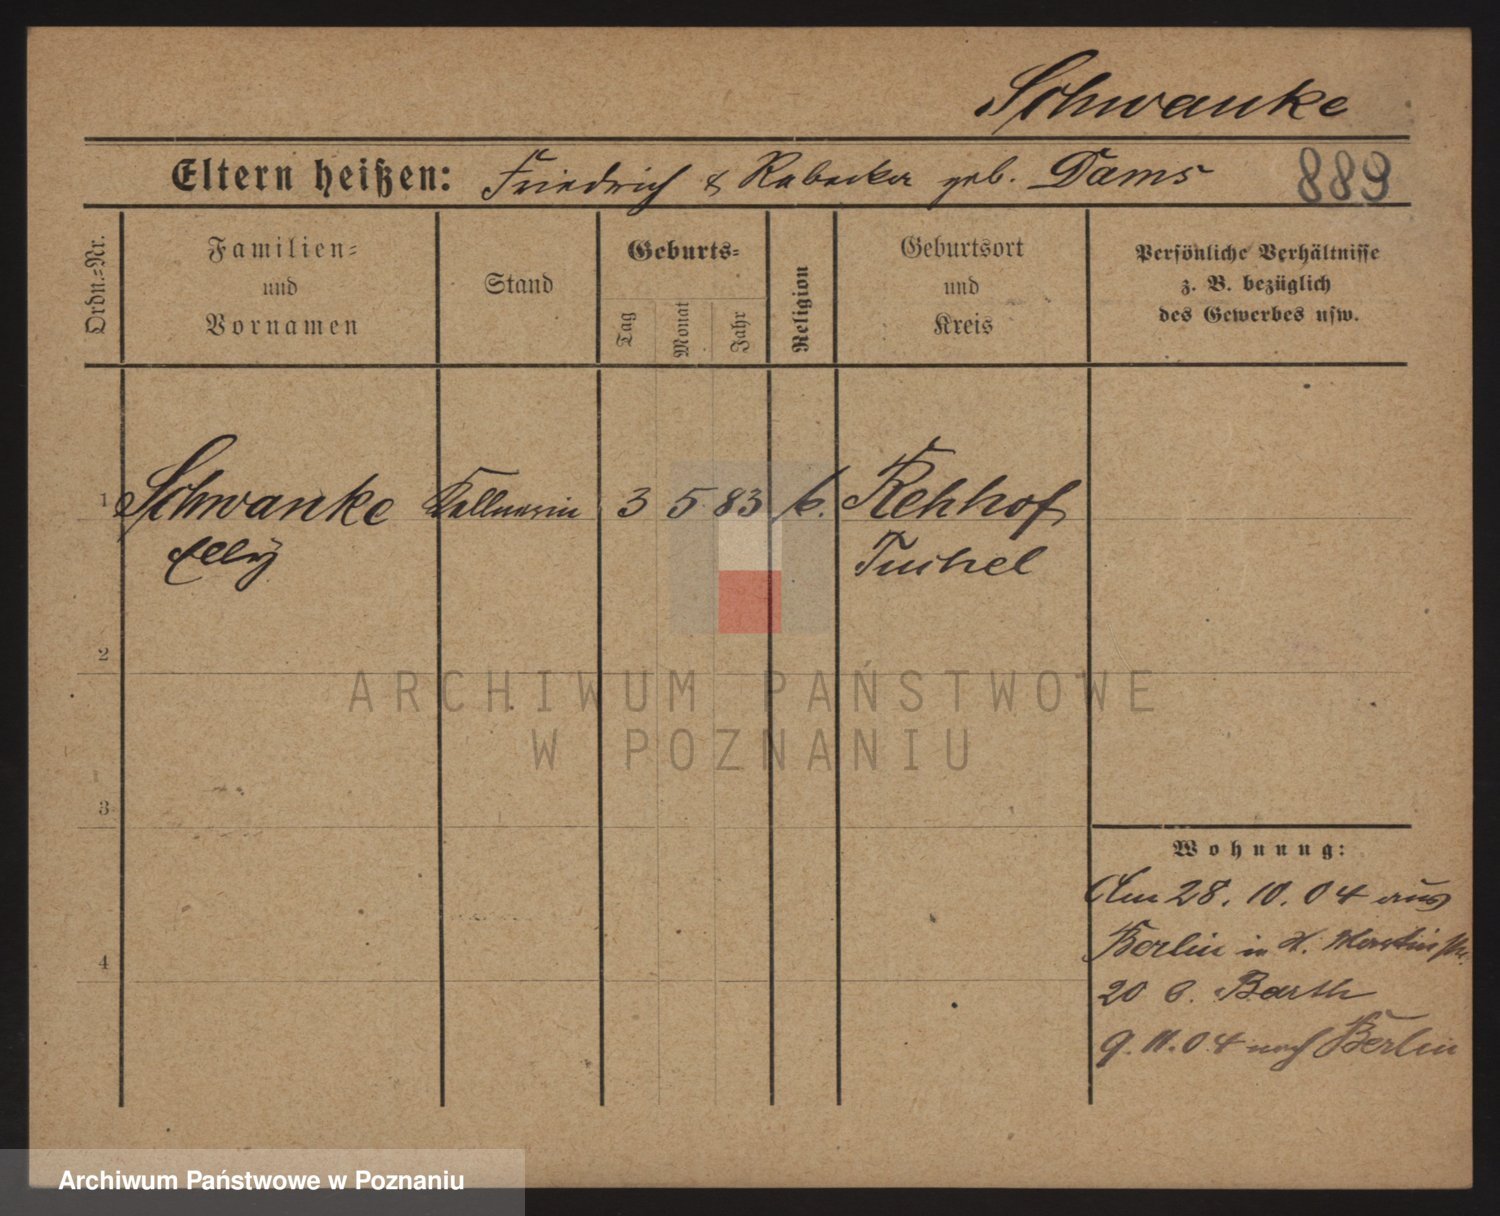 Schwanke
Eltern heißen: Friedrich & Rebecka geb. Dams 889
Ordn.=Nr.
Familien=
und
Vornamen
Stand
Geburts=
Tag
Monat
Jahr
Religion
Geburtsort
und
Kreis
Persönliche Verhältnisse
z. B. bezüglich
des Gewerbes usw.
1 Schwanke Kellnerin 3 5 83 k. Rehhof
Elly Tuchel
2
ARCHIWUM PAŃSTWOWE
W POZNANIU
3
Wohnung:
Am 28. 10. 04 aus
Berlin in St. Martinstr.
4
20 b. Barth
9. 11. 04 nach Berlin
Archiwum Państwowe w Poznaniu